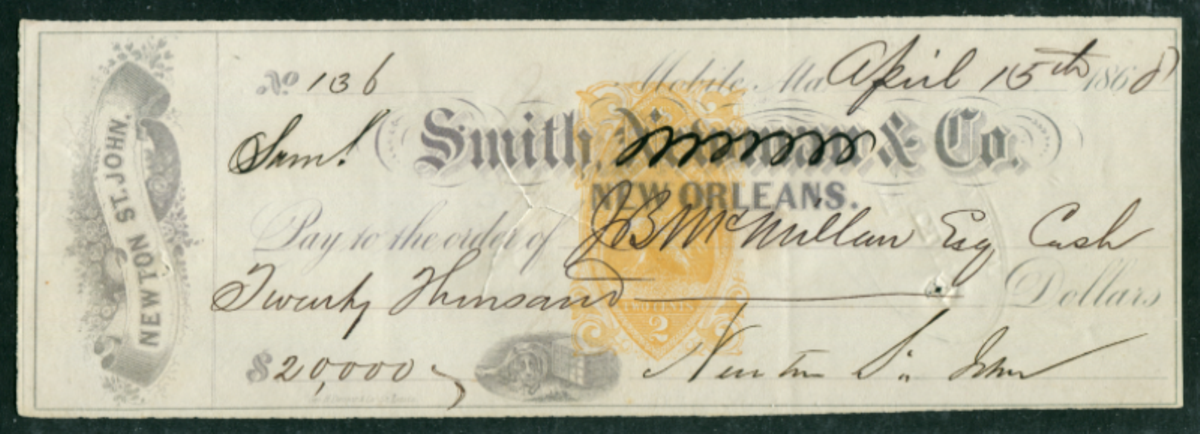 NEWTON ST. JOHN.
No 136 Mobile, Ala April 15th 1868
Saml Smith, & Co.
NEW ORLEANS.
Pay to the order of J B McMillan Esq Cash
Twenty Thousand Dollars
TWO CENTS
2
$20,000
Newton St. John